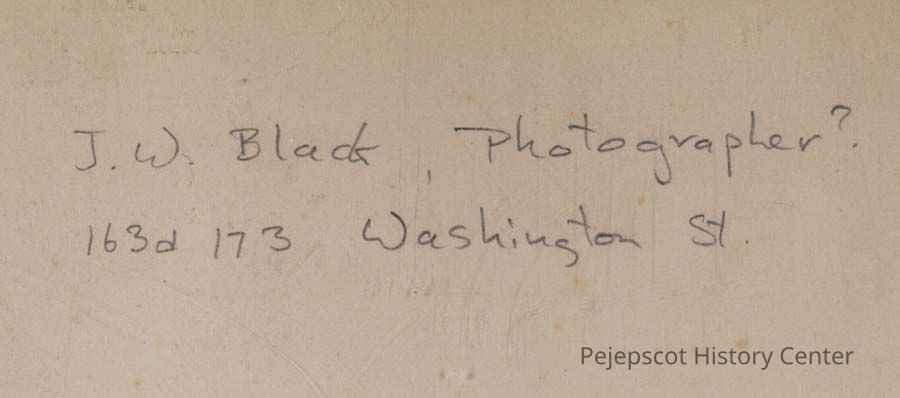 J. W. Black, Photographer?
163d 173 Washington St.
Pejepscot History Center